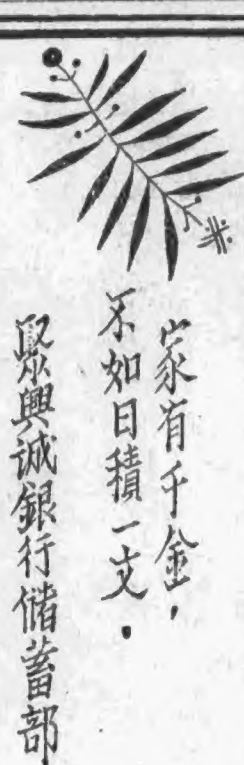 家有千金，
不如日積一文．
聚興誠銀行儲蓄部